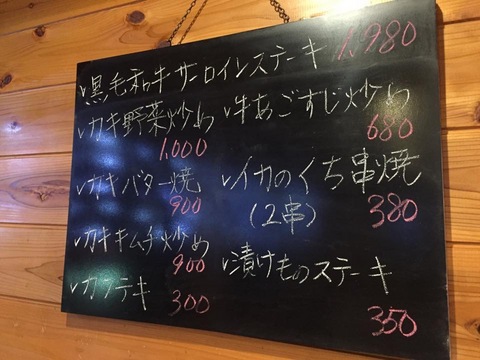 ✓黒毛和牛サーロインステーキ 1,980
✓カキ野菜炒め
1,000
✓カキバター焼
900
✓カキキムチ炒め
900
✓カクテキ
300
✓牛あごすじ炒め
680
✓イカのくち串焼
(2串) 380
✓漬けものステーキ
350